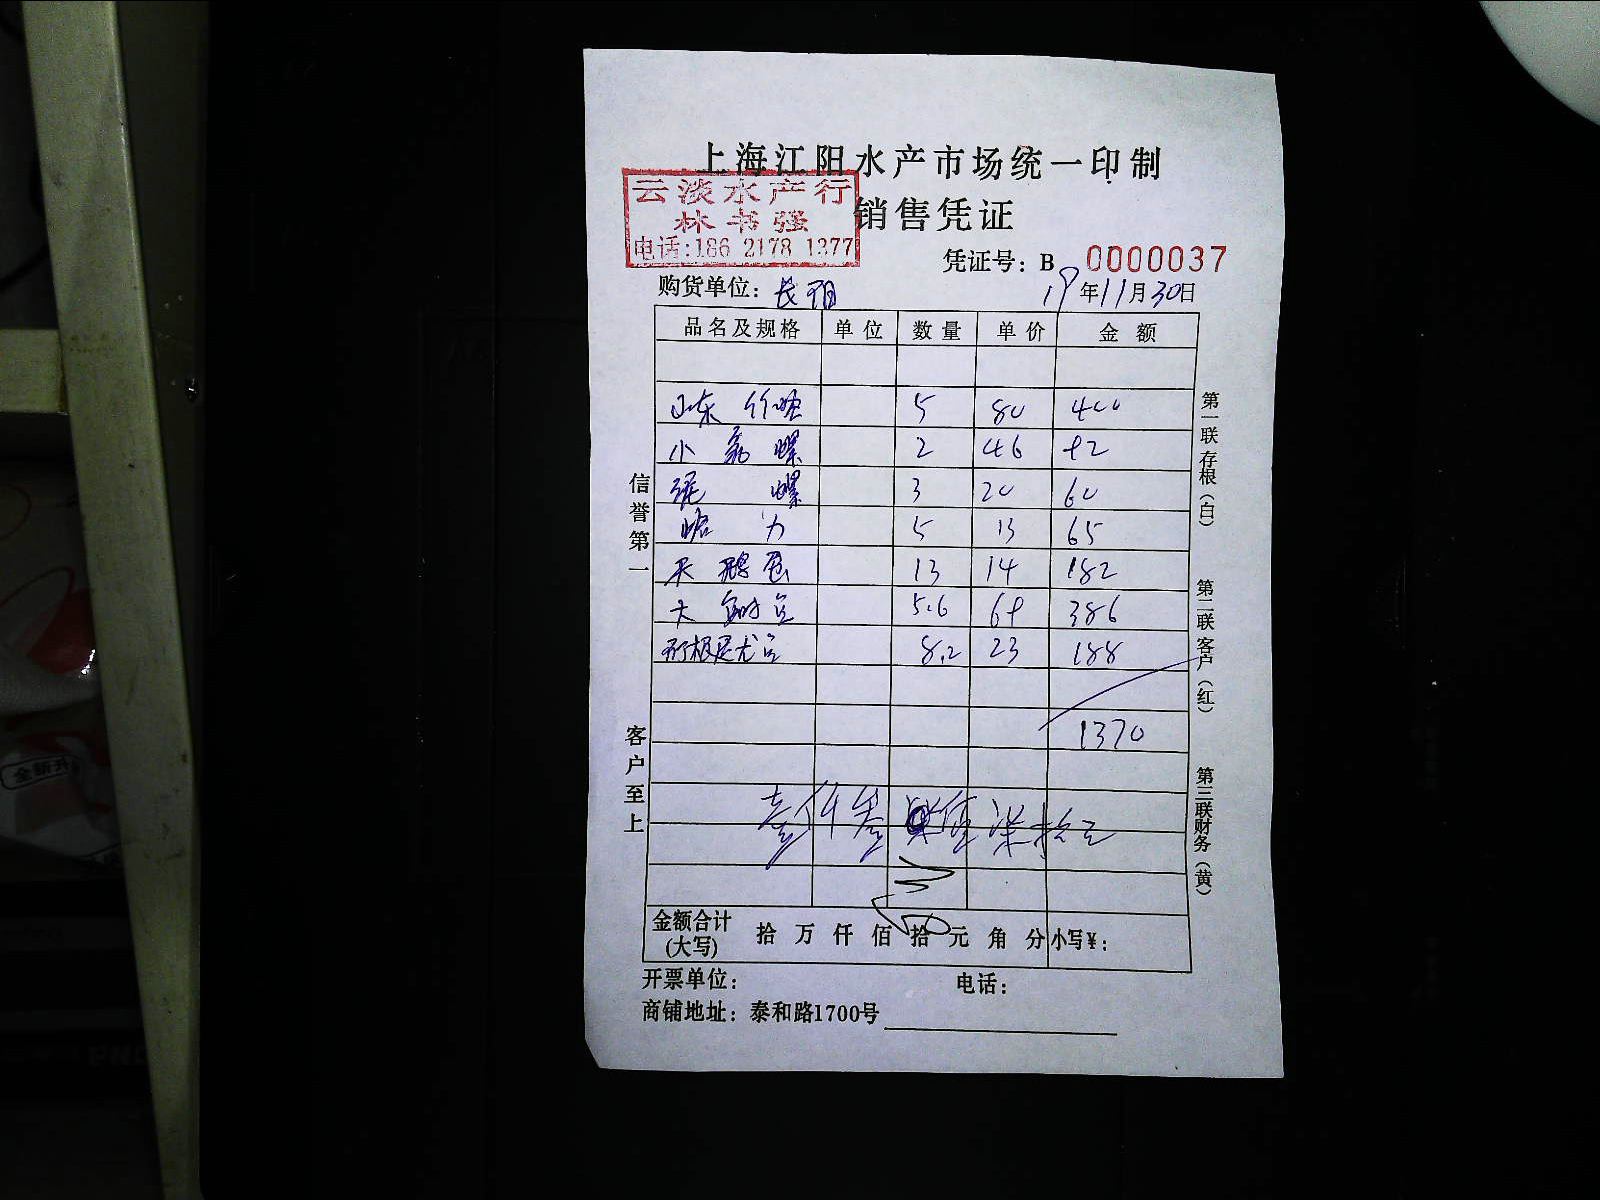 上海江阳水产市场统一印制
云淡水产行
林书强
电话:186 2178 1377
销售凭证
凭证号: B 0000037
购货单位: 长
19年11月30日
品名及规格 单位 数量 单价 金额
山东 竹蛏 5 80 400
小 荔 螺 2 46 92
泥 螺 3 20 60
蛤 力 5 13 65
天鹅蛋 13 14 182
大 5.6 69 386
阿根廷 8.2 23 188
1370
壹仟叁 佰柒拾元
金额合计 (大写) 拾 万 仟 佰 拾 元 角 分 小写¥:
开票单位: 电话:
商铺地址: 泰和路1700号
信誉第一
客户至上
第一联存根(白)
第二联客户(红)
第三联财务(黄)
全新开